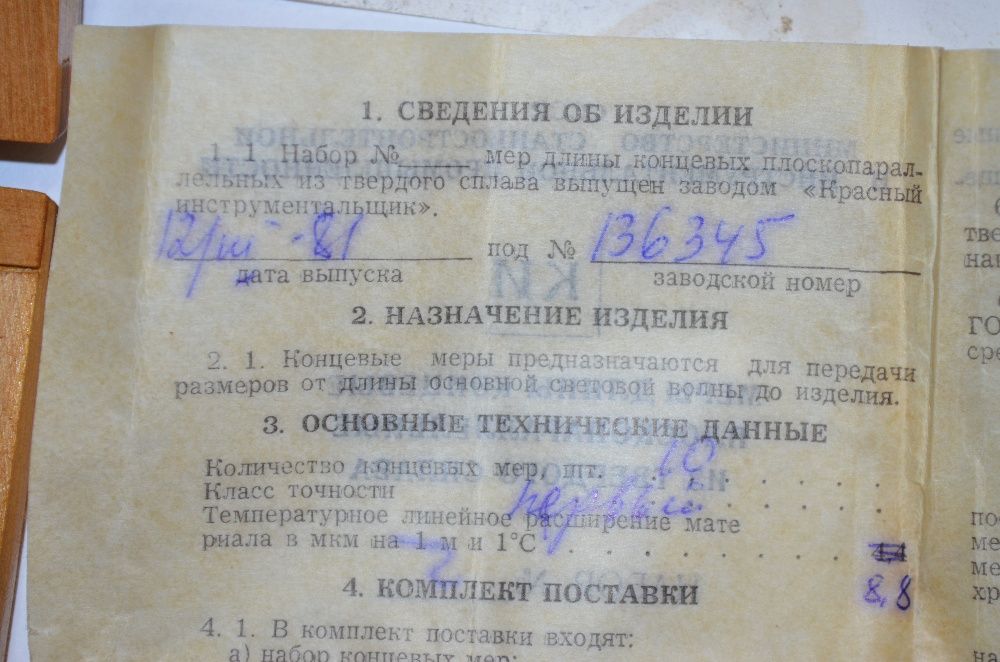 1. СВЕДЕНИЯ ОБ ИЗДЕЛИИ
1. 1. Набор № мер длины концевых плоскопарал-
лельных из твердого сплава выпущен заводом «Красный
инструментальщик».
под № 136345
дата выпуска заводской номер
КИ
2. НАЗНАЧЕНИЕ ИЗДЕЛИЯ
2. 1. Концевые меры предназначаются для передачи
размеров от длины основной световой волны до изделия.
3. ОСНОВНЫЕ ТЕХНИЧЕСКИЕ ДАННЫЕ
Количество концевых мер, шт. 10
Класс точности первый
Температурное линейное расширение мате
риала в мкм на 1 м и 1°С 4,4
8,8
4. КОМПЛЕКТ ПОСТАВКИ
4. 1. В комплект поставки входят:
а) набор концевых мер;